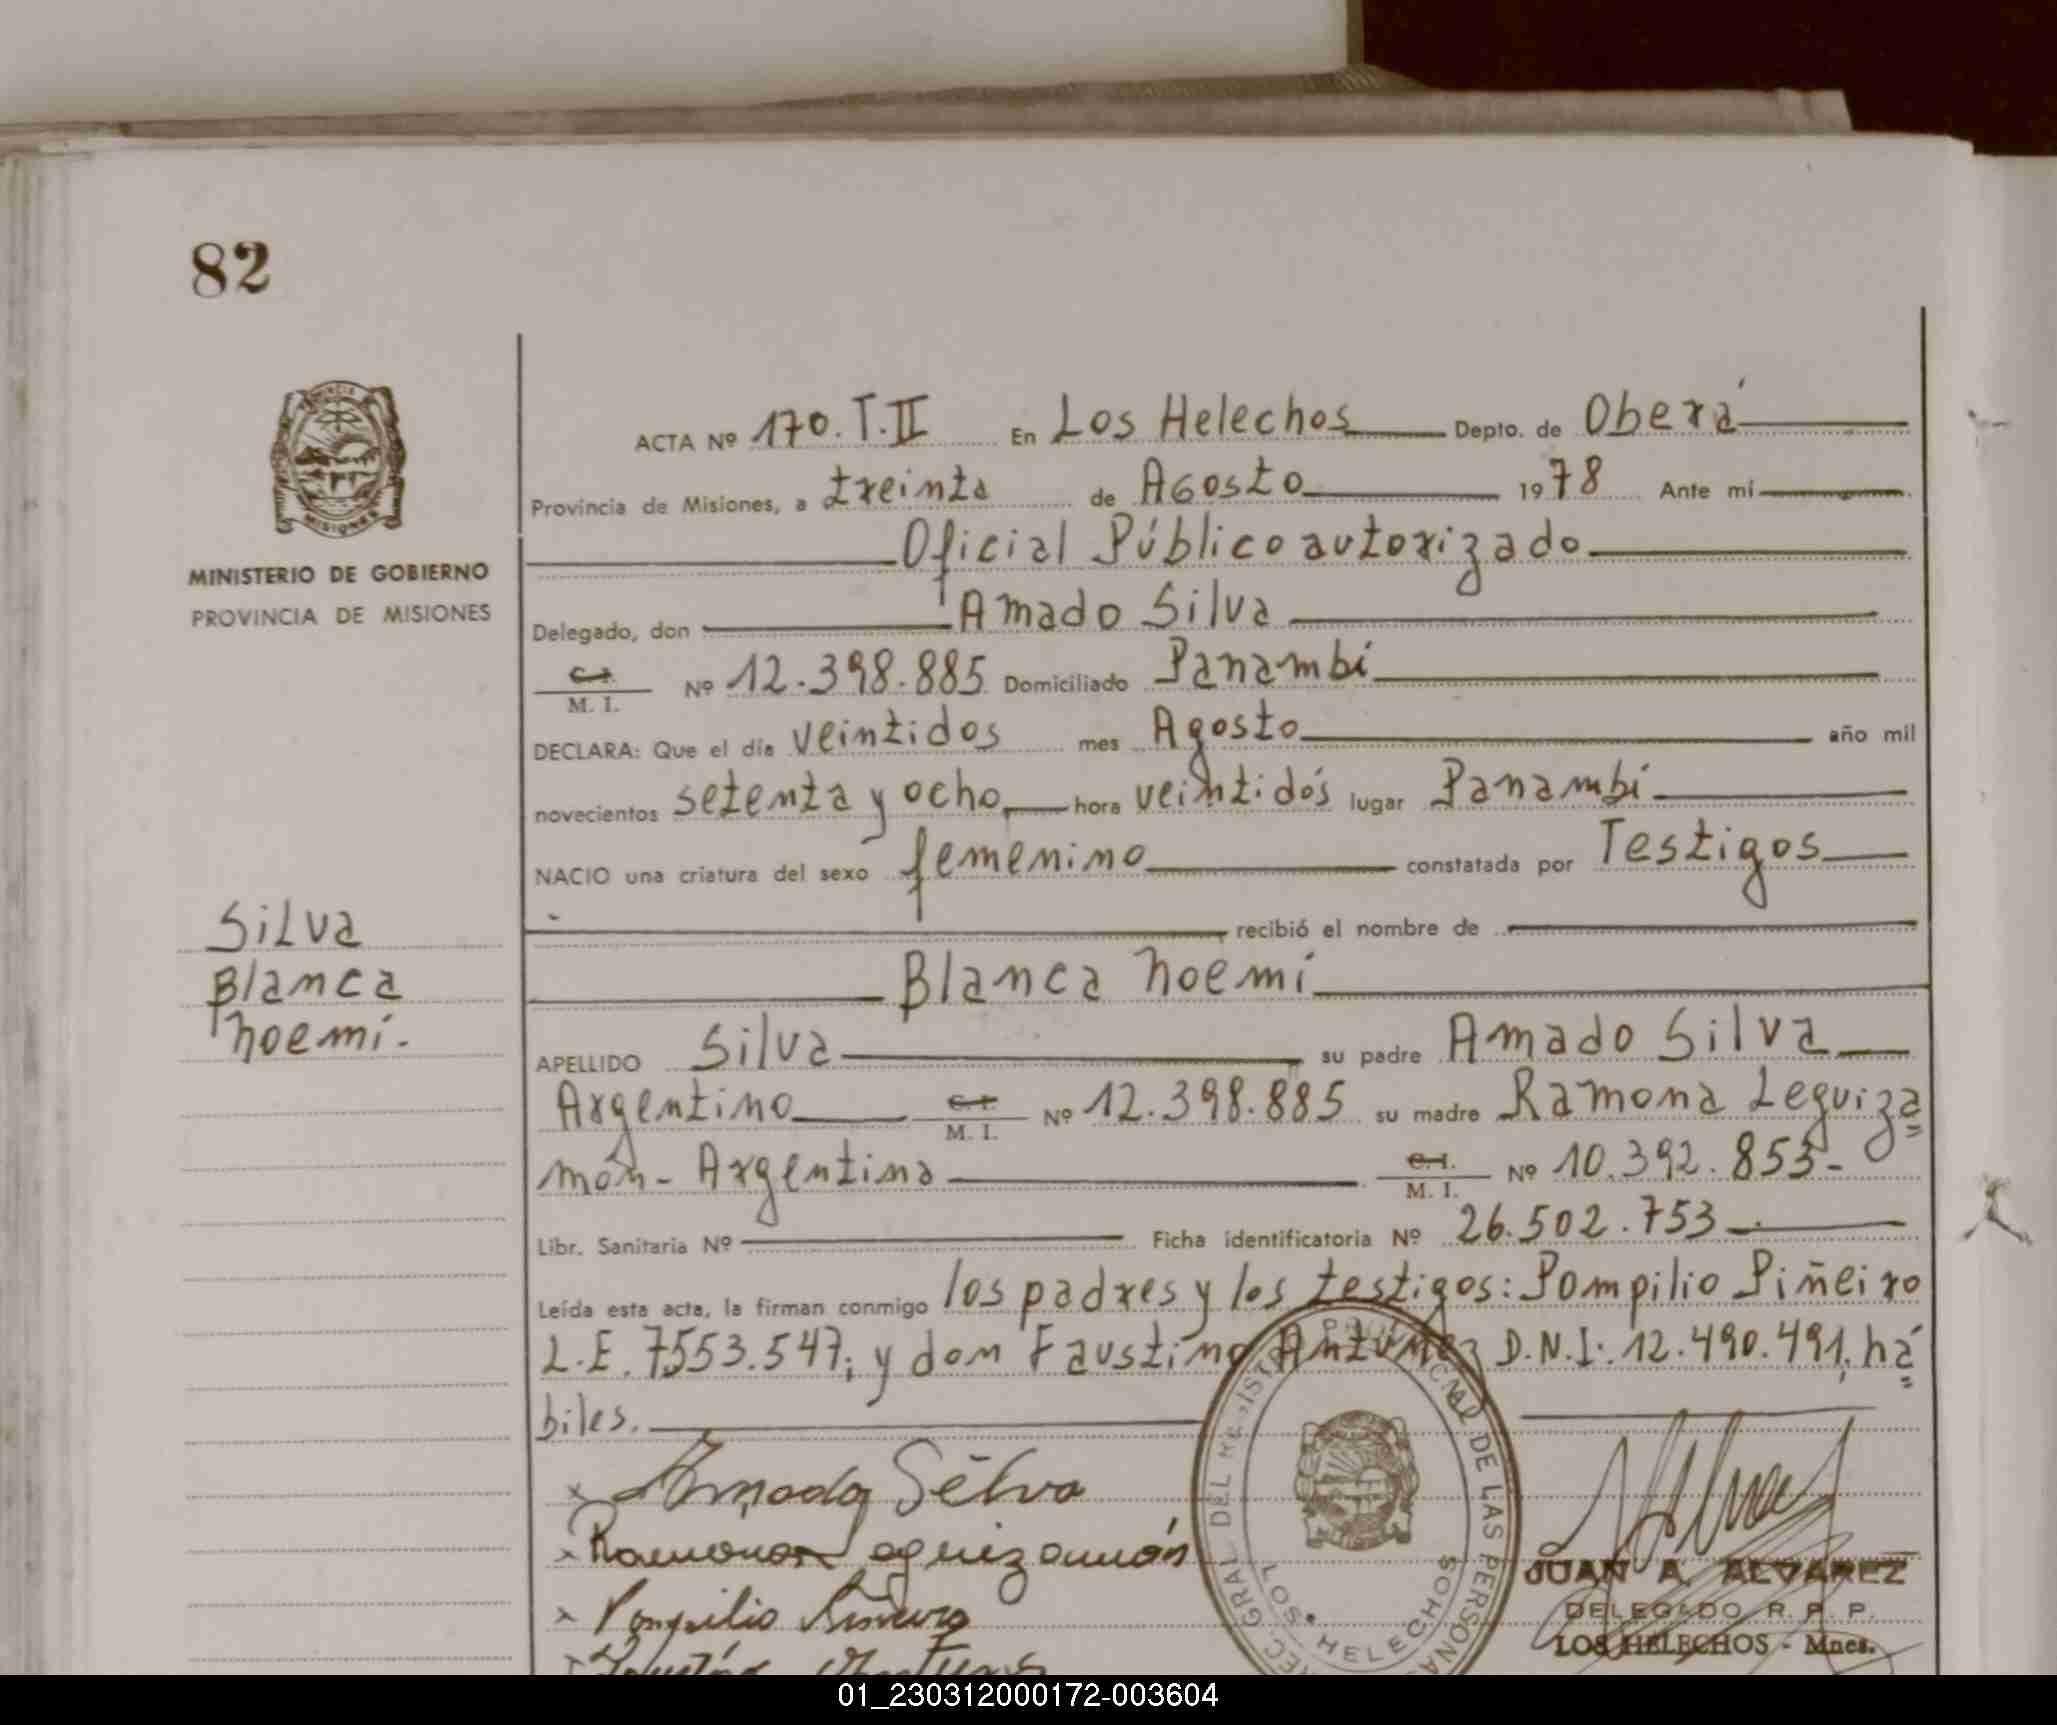 82
PROVINCIA
MISIONES
MINISTERIO DE GOBIERNO
PROVINCIA DE MISIONES
Silva
Blanca
Noemí.
ACTA Nº 170.T.II En Los Helechos Depto. de Oberá
Provincia de Misiones, a treinta de Agosto 1978 Ante mí
Oficial Público autorizado
Delegado, don Amado Silva
C.I.
M. I. Nº 12.398.885 Domiciliado Panambí
DECLARA: Que el día veintidos mes Agosto año mil
novecientos setenta y ocho hora veintidós lugar Panambí
NACIO una criatura del sexo femenino constatada por Testigos
recibió el nombre de
Blanca Noemí
APELLIDO Silva su padre Amado Silva
Argentino C.I. M. I. Nº 12.398.885 su madre Ramona Leguiza=
món- Argentina C.I. M. I. Nº 10.392.853-
Libr. Sanitaria Nº Ficha identificatoria Nº 26.502.753
Leída esta acta, la firman conmigo los padres y los testigos: Pompilio Piñeiro
L.E. 7553.547; y don Faustino Antúnez D.N.I: 12.490.491, há=
biles.
Amado Silva
Pompilio
DEL DE LAS PERSONAS
LOS HELECHOS
JUAN A. ALVAREZ
DELEGADO R. P. P.
LOS HELECHOS - Mnes.
01_230312000172-003604